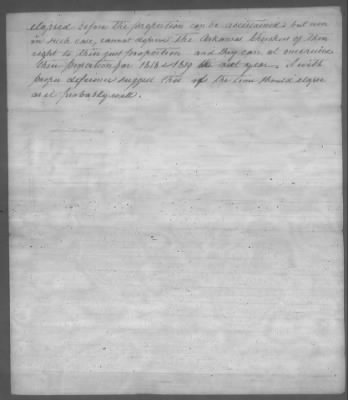 elapsed before the proportion can be ascertained; but even
in such case, cannot deprive the Arkansas Cherokees of their
right to their just proportion and they can at once receive
their proportion for 1818 & 1819 the last year. I with
proper deference suggest that if the time should elapse
as it probably will.